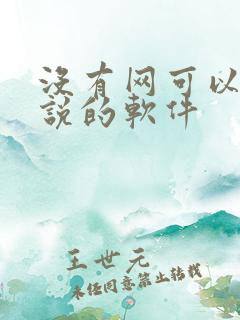 沒有网可以
說的軟件
王世元
未经同意禁止转载